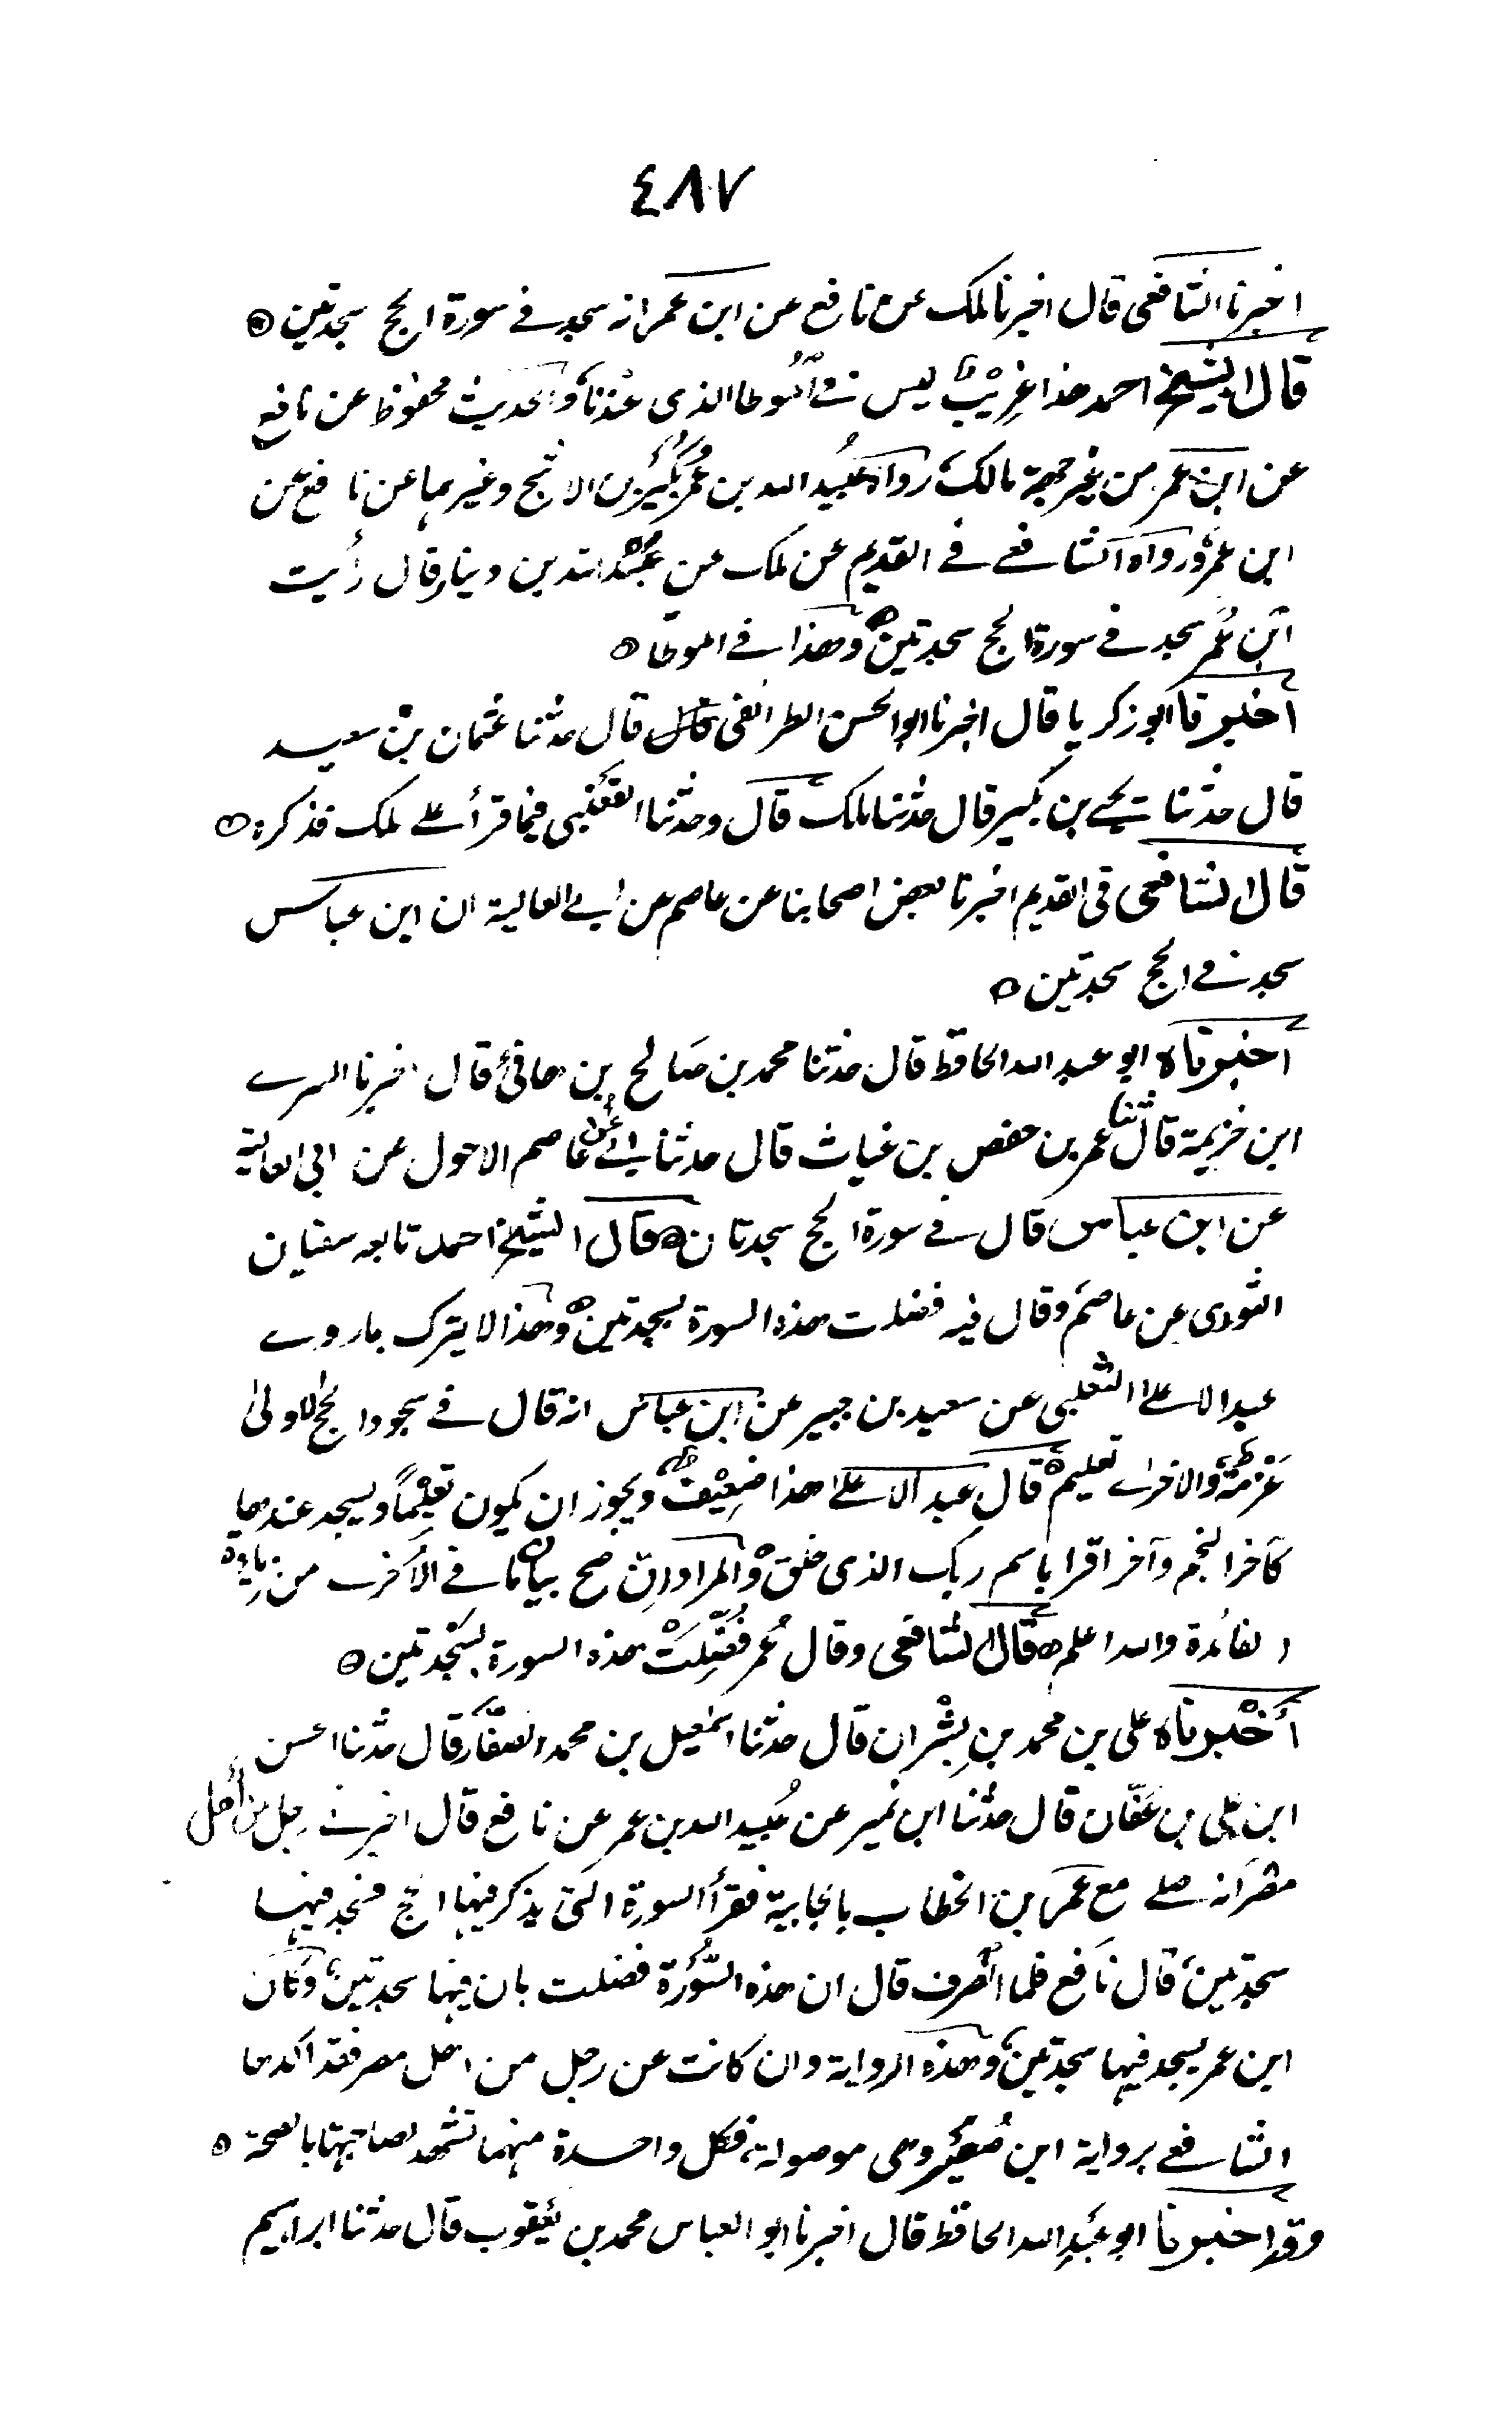 ٤٨٧
اخبرنا الشافعى قال اخبرنا ملك عن نافع عن ابن عمر انه سجد فے سورة الحج سجدتين
قال الشيخ احمد هذا غريب ليس فے الموطا الذى عندنا والحديث محفوظ عن نافع
عن ابن عمر من غير جهة مالك رواه عبيد الله بن عمر وبكير بن الاشج وغيرهما عن نافع عن
ابن عمر ورواه الشافعے فے القديم عن ملك عن عبد الله بن دينار قال رأيت
ابن عمر سجد فے سورة الحج سجدتين وهذا فے الموطا
أخبرنا ابو زكريا قال اخبرنا ابو الحسن الطرائفى قال حدثنا عثمان بن سعيد
قال حدثنا يحيے بن بكير قال حدثنا ملك قال وحدثنا القعنبى فيما قرأ علے ملك فذكره
قال الشافعى فى القديم اخبرنا بعض اصحابنا عن عاصم عن ابے العالية ان ابن عباس
سجد فے الحج سجدتين
أخبرناه ابو عبد الله الحافظ قال حدثنا محمد بن صالح بن هانئ قال اخبرنا السرے
ابن خزيمة قال ثنا عمر بن حفص بن غياث قال حدثنا ابے عن عاصم الاحول عن ابى العالية
عن ابن عباس قال فے سورة الحج سجدتان قال الشيخ احمد تابعه سفيان
الثورى عن عاصم وقال فيه فضلت هذه السورة بسجدتين وهذا لا يترك بما روے
عبد الاعلے الثعلبى عن سعيد بن جبير عن ابن عباس انه قال فے سجود الحج الاولى
عزمة والاخرے تعليم قال عبد الاعلے هذا ضعيف ويجوز ان يكون تعليما ويسجد عندها
كآخر النجم وآخر اقرا باسم ربك الذى خلق والمراد ان صح بيان ما فے الأخرے من زيادة
الفائدة والله اعلم قال الشافعى وقال عمر فضلت هذه السورة بسجدتين
أخبرناه على بن محمد بن بشران قال حدثنا اسمعيل بن محمد الصفار قال حدثنا الحسن
ابن على بن عفان قال حدثنا ابن نمير عن عبيد الله بن عمر عن نافع قال اخبرنے رجل من أهل
مصر انه صلے مع عمر بن الخطاب بالجابية فقرأ السورة التى يذكر فيها الحج فسجد فيها
سجدتين قال نافع فلما انصرف قال ان هذه السورة فضلت بان فيها سجدتين وكان
ابن عمر يسجد فيها سجدتين وهذه الرواية وان كانت عن رجل من اهل مصر فقد اكدها
الشافعے برواية ابن صعير وهى موصولة، فكل واحدة منهما تشهد لصاحبتها بالصحة
وقد اخبرنا ابو عبد الله الحافظ قال اخبرنا ابو العباس محمد بن يعقوب قال حدثنا ابراهيم